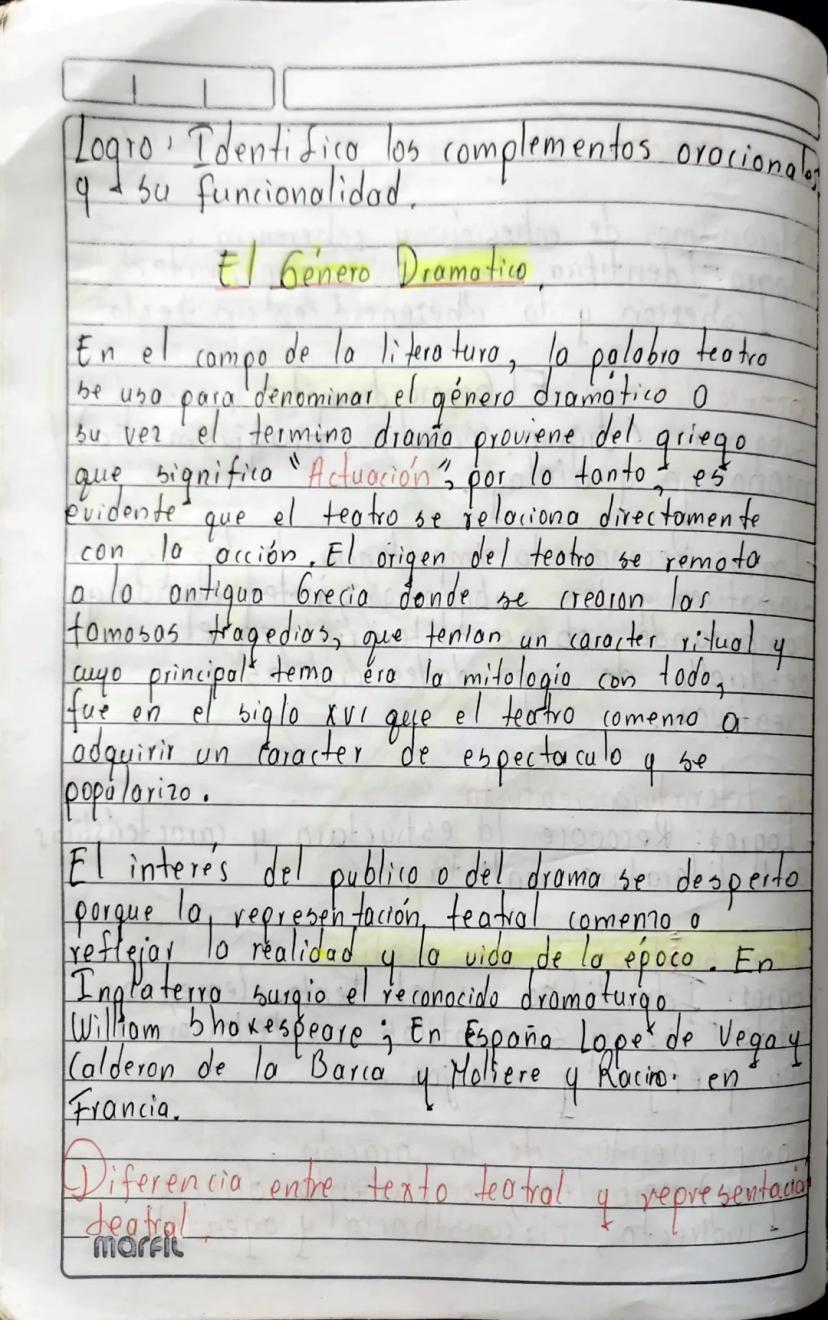 Logro: Identifico los complementos oracionales
y su funcionalidad.
El Género Dramatico.
En el campo de la literatura, la palabra teatro
se usa para denominar el género dramático a
su vez el termino drama proviene del griego
que significa "Actuación", por lo tanto, es
evidente que el teatro se relaciona directamente
con la acción. El origen del teatro se remota
a la antigua Grecia donde se crearon las
famosas tragedias, que tenian un caracter ritual y
cuyo principal tema era la mitologia con todo,
fue en el siglo XVI que el teatro comenzo a
adquirir un caracter de espectaculo y se
popularizo.
El interés del publico o del drama se desperto
porque la representación teatral comenzo a
reflejar la realidad y la vida de la época. En
Inglaterra surgio el reconocido dramaturgo
William Shakespeare; En España Lope de Vega y
Calderon de la Barca y Moliere y Racine en
Francia.
Diferencia entre texto teatral y representacial
teatral.
marfil